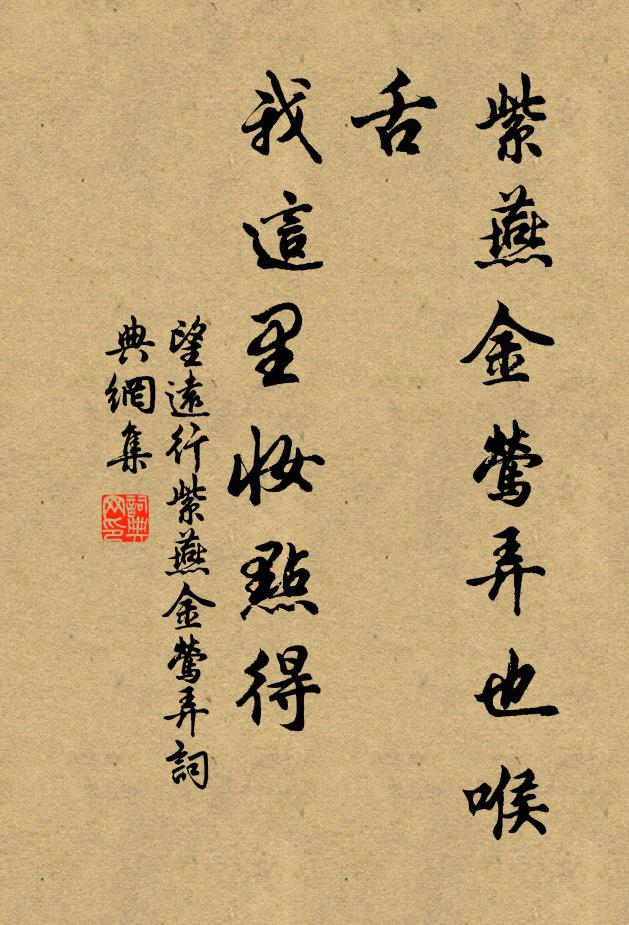 紫燕金莺弄也喉
舌
我這里妝點得
望遠行紫燕金莺弄詞
典網集
詞典
网印